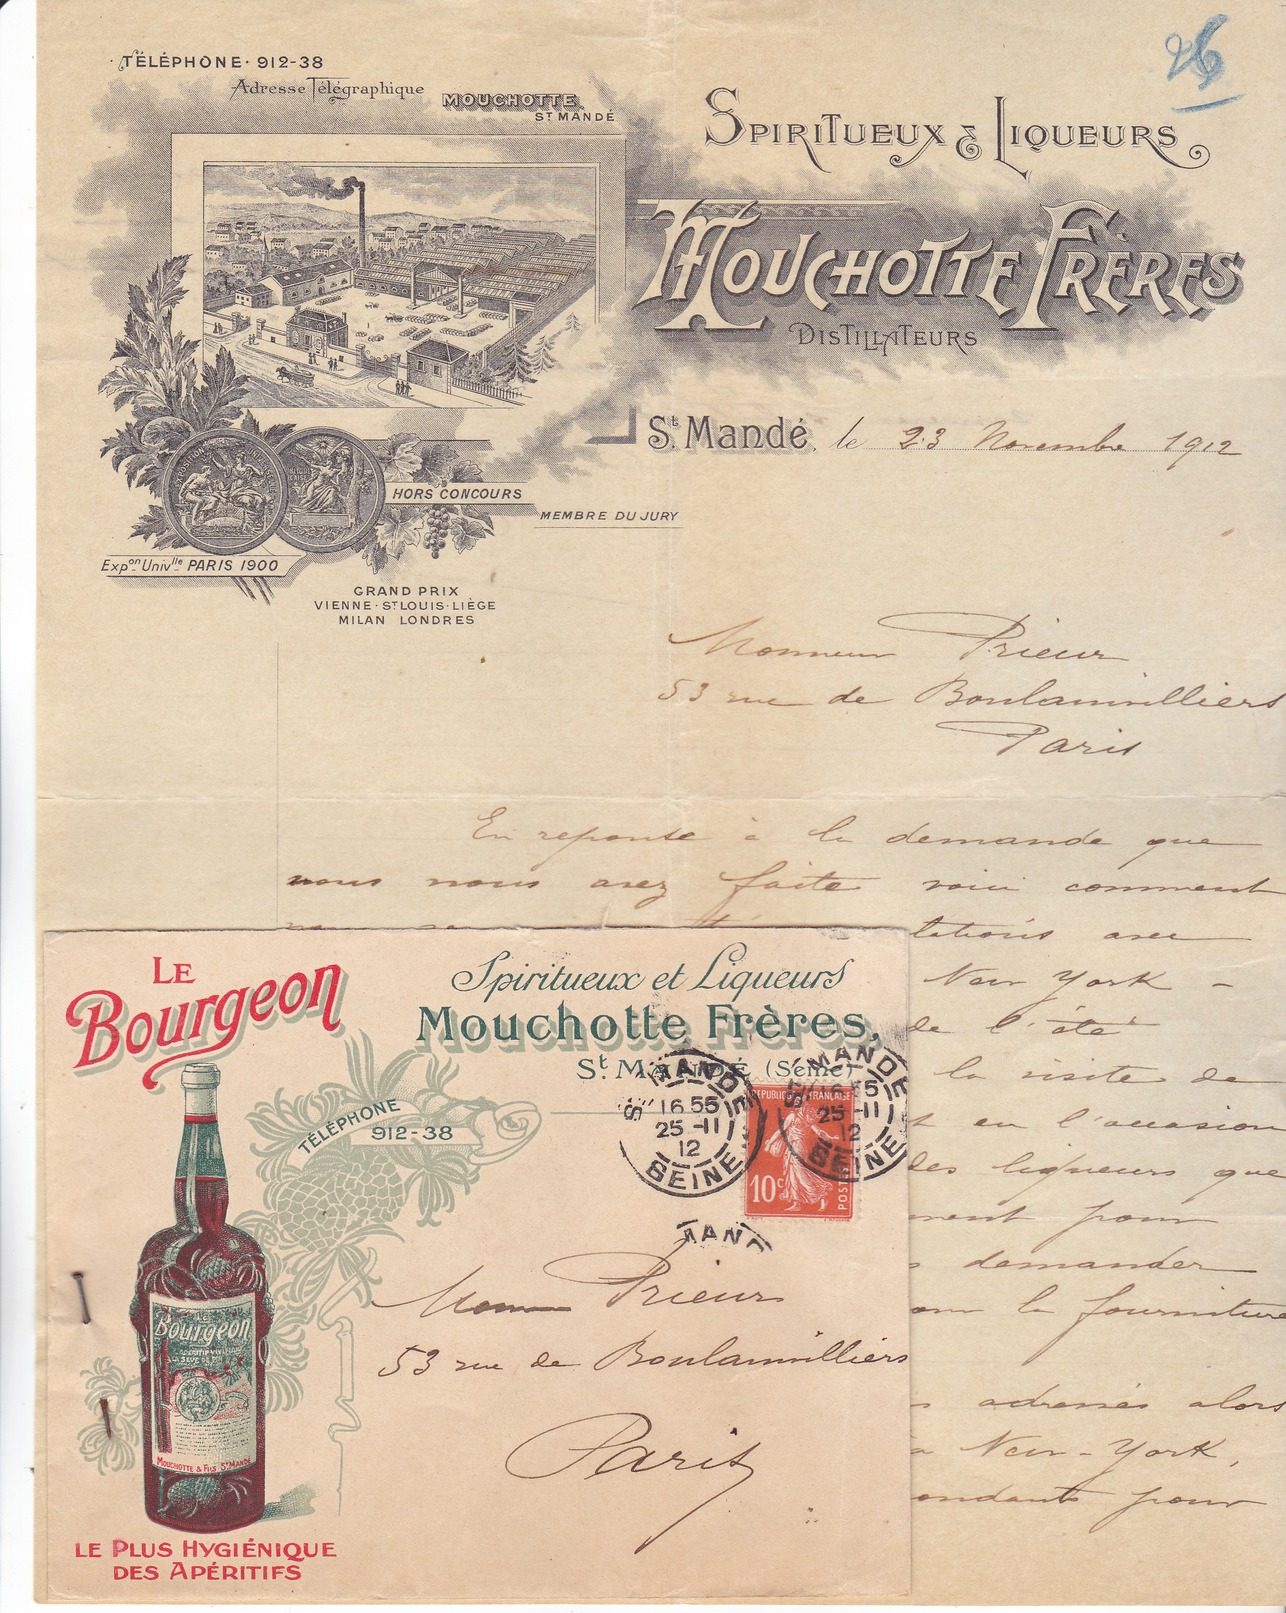 26
·TÉLÉPHONE· 912-38
Adresse Télégraphique
MOUCHOTTE
ST MANDÉ
SPIRITUEUX & LIQUEURS
MOUCHOTTE FRÈRES
DISTILLATEURS
St. Mandé, le 23 Novembre 1912
HORS CONCOURS
MEMBRE DU JURY
Expon Univlle PARIS 1900
GRAND PRIX
VIENNE·ST LOUIS·LIÈGE
MILAN LONDRES
Monsieur Prieur
53 rue de Boulainvilliers
Paris
En reponse à la demande que
vous nous avez faite voici comment
tations avec
New York -
de l'été
la visite de
en l'occasion
des liqueurs que
ment pour
demander
pour la fourniture
adressés alors
New-York,
ondants pour
LE
Bourgeon
Spiritueux et Liqueurs
Mouchotte Frères,
St. MANDÉ (Seine)
TÉLÉPHONE
912-38
ST MANDÉ
16 55
25 -11
12
SEINE
ST MANDÉ
16 55
25 -11
12
SEINE
REPUBLIQUE FRANÇAISE
10c
POSTES
MAND
Monsieur Prieur
53 rue de Boulainvilliers
Paris
LE
Bourgeon
MOUCHOTTE & FILS ST MANDÉ
LE PLUS HYGIÉNIQUE
DES APÉRITIFS